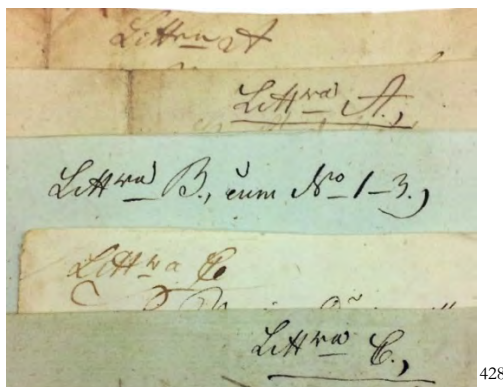 Littra A
Littra A.,
Littra B., cum No 1-3.,
Littra C
Littra C.,
428